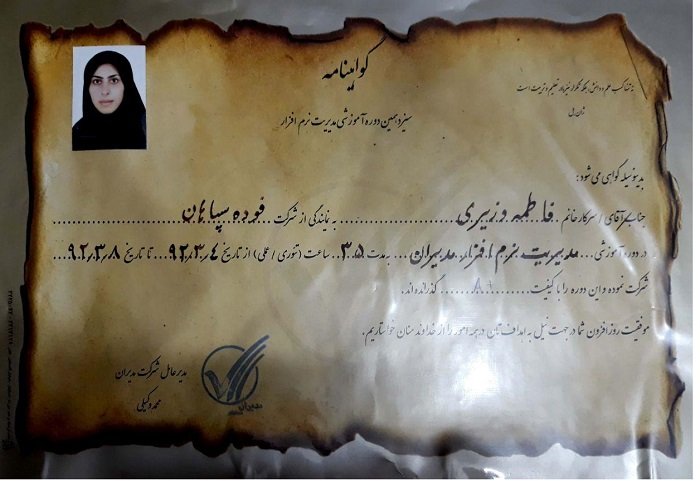 گواهینامه
سیزدهمین دوره آموزشی مدیریت نرم افزار
نه تنها کسب علم و دانش، بلکه تکرار نیز مادر تعلیم و تربیت است
ژان پل
بدینوسیله گواهی می شود:
جناب آقای / سرکار خانم فاطمه وزیری به نمایندگی از شرکت فوده سپاهان
در دوره آموزشی مدیریت نرم افزار مدیران به مدت ۳۵ ساعت (تئوری / عملی) از تاریخ ۹۲٫۳٫۴ تا تاریخ ۹۲٫۳٫۸
شرکت نموده و این دوره را با کیفیت A+ گذرانده اند.
موفقیت روزافزون شما در جهت نیل به اهداف تان در همه امور را از خداوند منان خواستاریم.
مدیرعامل شرکت مدیران
محمد وکیلی
مدیران